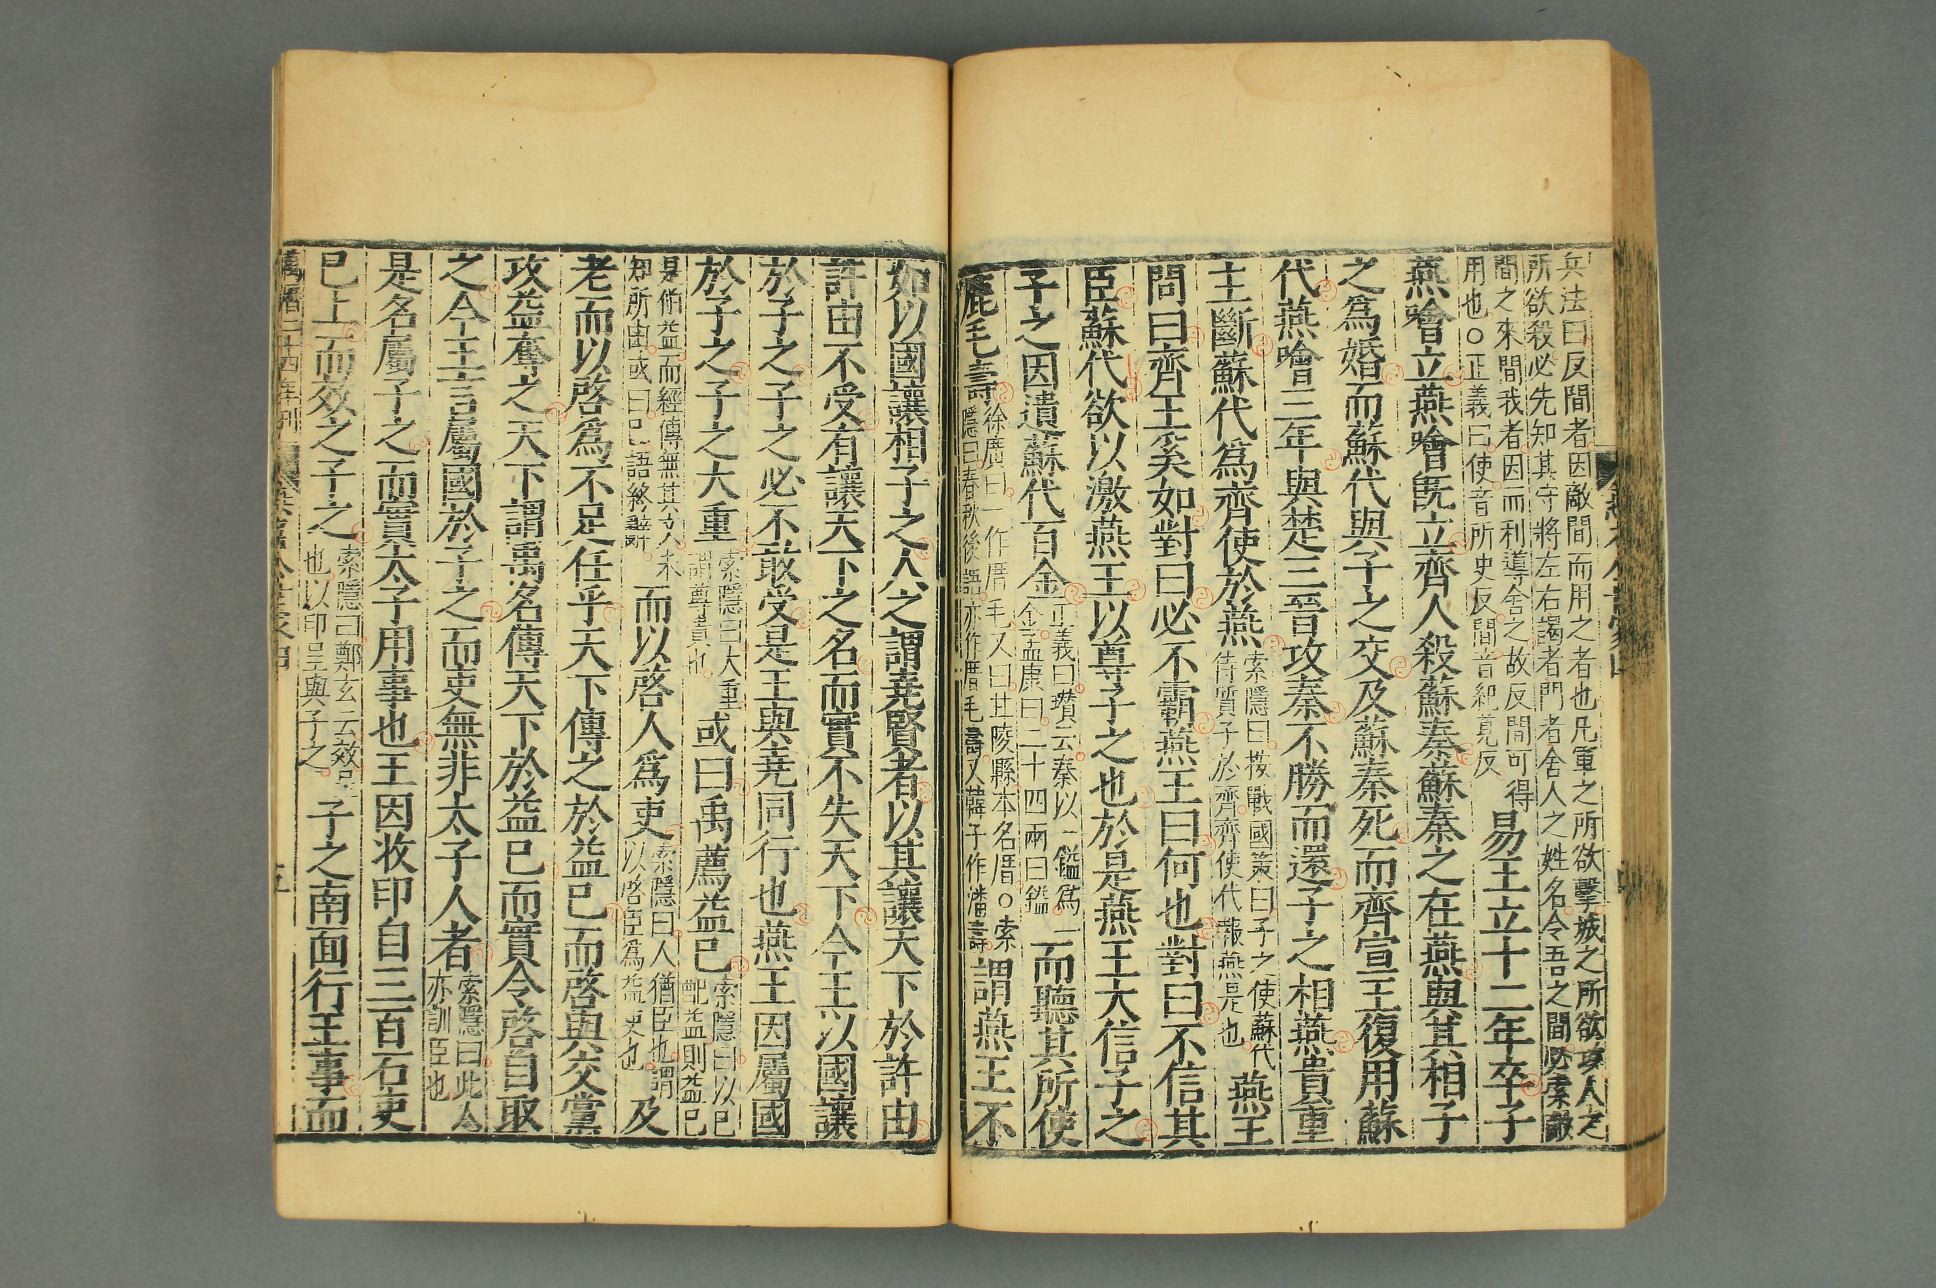 兵法曰反間者因敵間而用之者也凡軍之所欲擊城之所欲攻人之
所欲殺必先知其守將左右謁者門者舍人之姓名令吾之間必索敵
間之來間我者因而利導舍之故反間可得
用也○正義曰使音所吏反間音紀莧反
易王立十二年卒子
燕噲立燕噲旣立齊人殺蘇秦蘇秦之在燕與其相子
之爲婚而蘇代與子之交及蘇秦死而齊宣王復用蘇
代燕噲三年與楚三晉攻秦不勝而還子之相燕貴重
主斷蘇代爲齊使於燕
索隱曰按戰國策曰子之使蘇代
侍質子於齊齊使代報燕是也
燕王
問曰齊王奚如對曰必不霸燕王曰何也對曰不信其
臣蘇代欲以激燕王以尊子之也於是燕王大信子之
子之因遺蘇代百金
正義曰瓚云秦以一鎰爲一
金孟康曰二十四兩曰鎰
而聽其所使
鹿毛壽
徐廣曰一作厝毛又曰甘陵縣本名厝○索
隱曰春秋後語亦作厝毛壽又韓子作潘壽
謂燕王不
如以國讓相子之人之謂堯賢者以其讓天下於許由
許由不受有讓天下之名而實不失天下今王以國讓
於子之子之必不敢受是王與堯同行也燕王因屬國
於子之子之大重
索隱曰大重
謂尊貴也
或曰禹薦益已
索隱曰以已
配益則益已
是伯益而經傳無其文未
知所由或曰已語終辭
而以啓人爲吏
索隱曰人猶臣也謂
以啓臣爲益吏也
及
老而以啓爲不足任乎天下傳之於益已而啓與交黨
攻益奪之天下謂禹名傳天下於益已而實令啓自取
之今王言屬國於子之而吏無非太子人者
索隱曰此人
亦訓臣也
是名屬子之而實太子用事也王因收印自三百石吏
已上而效之子之
索隱曰鄭玄云效呈
也以印呈與子之
子之南面行王事而
萬曆二十四年刊
五